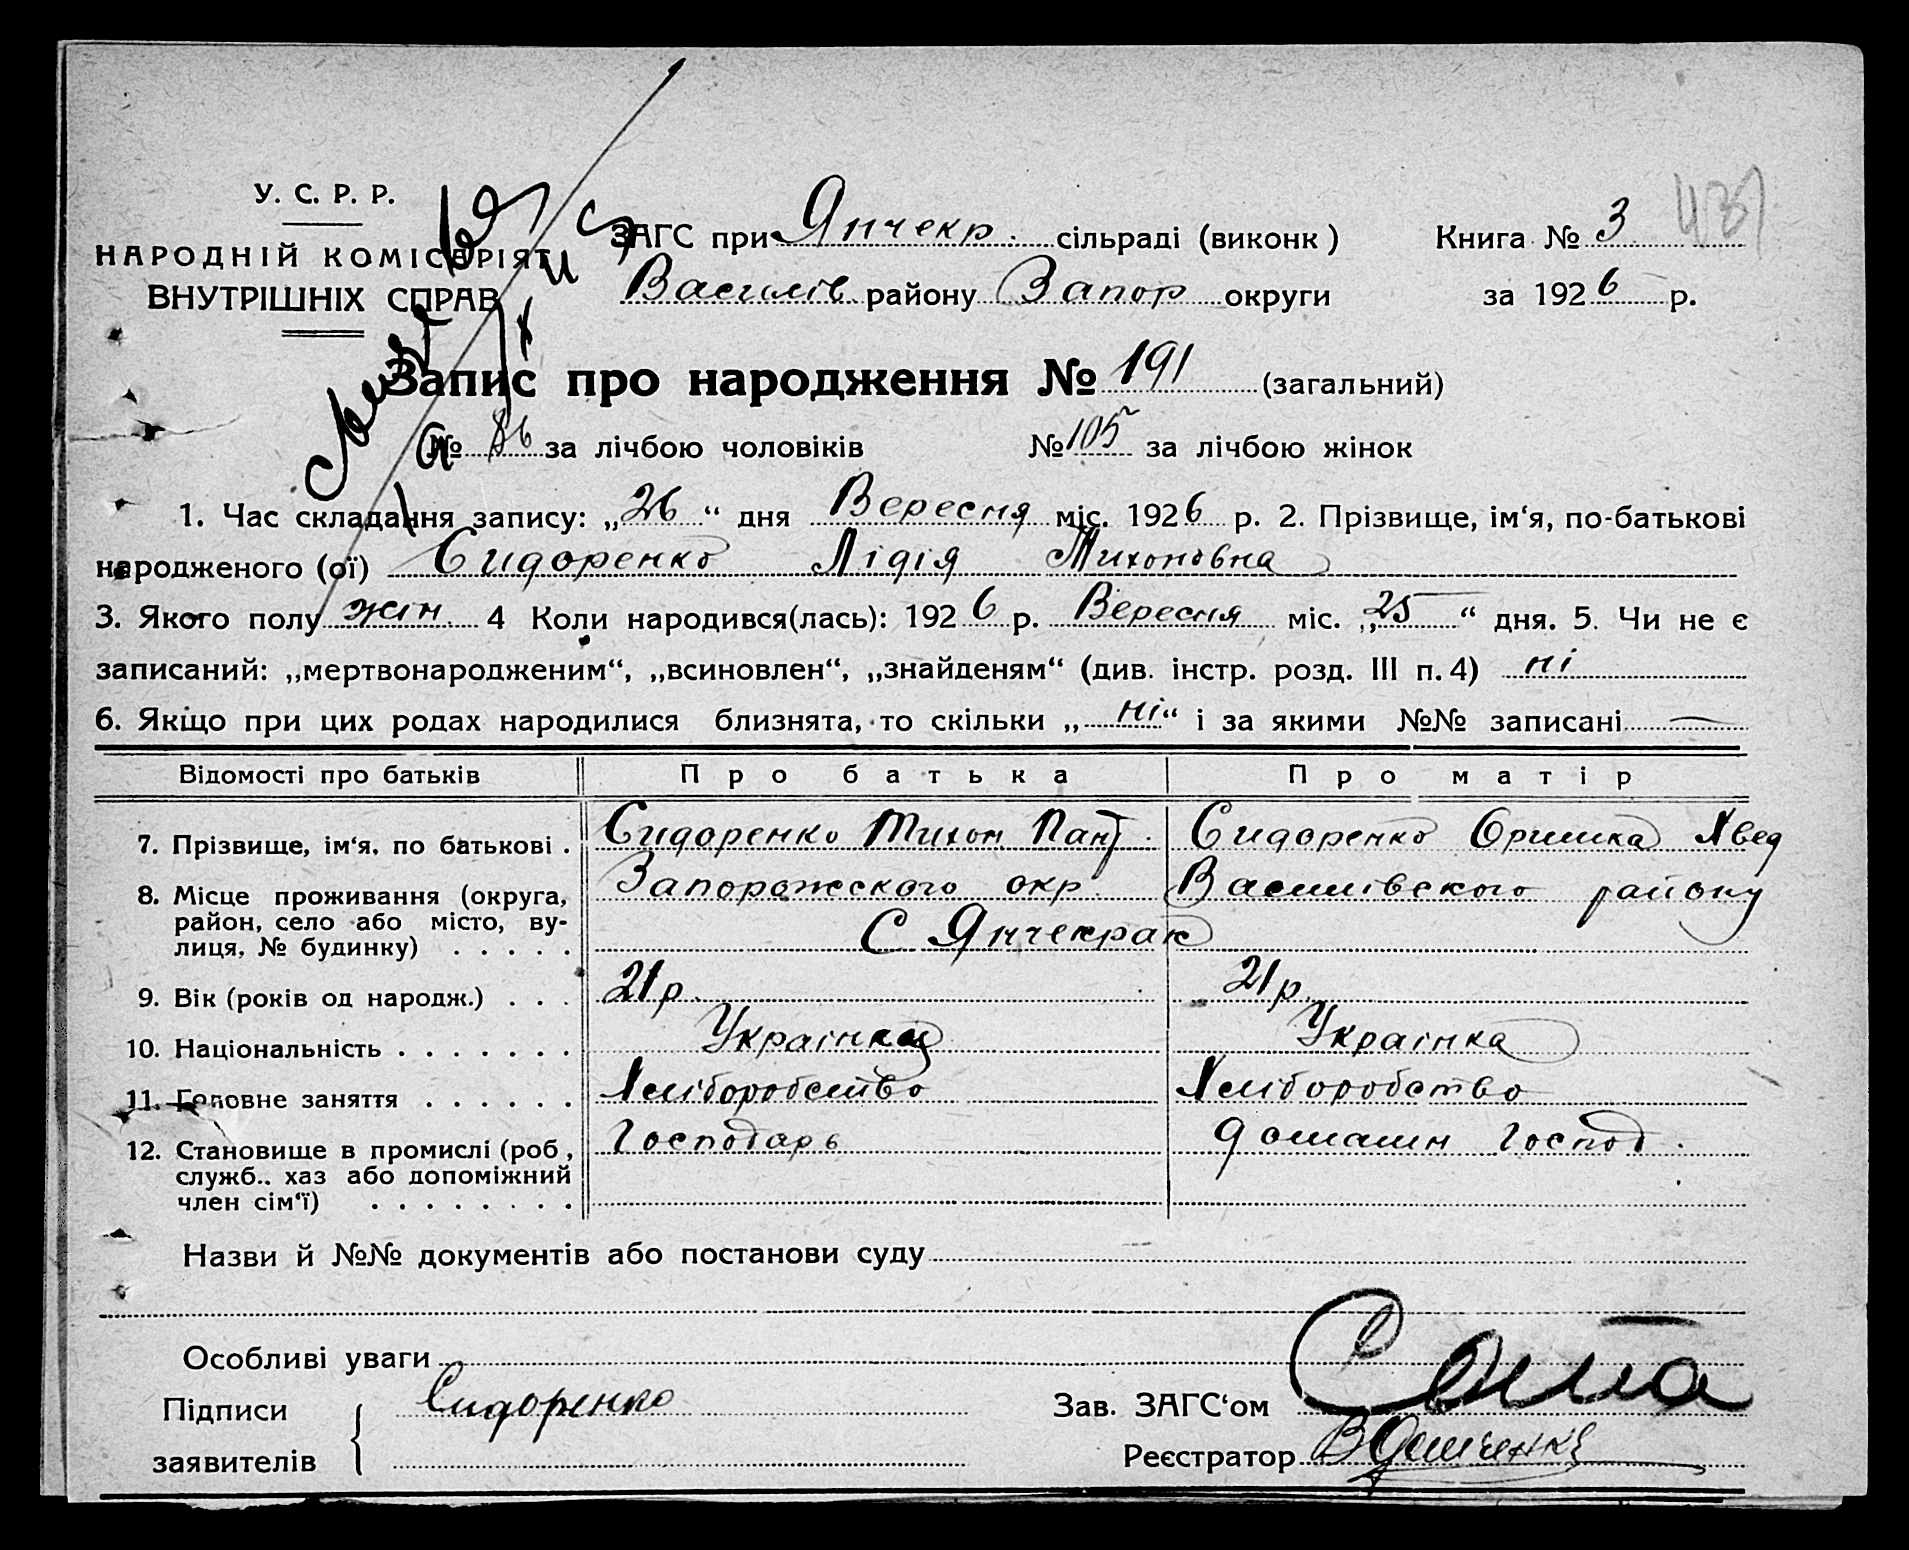 У. С. Р. Р.
НАРОДНІЙ КОМІСАРІЯТ
ВНУТРІШНІХ СПРАВ
ЗАГС при Янчекр. сільраді (виконк)
Книга № 3
Василів району Запор округи
за 1926 р.
Запис про народження № 191 (загальний)
№ 86 за лічбою чоловіків № 105 за лічбою жінок
1. Час складання запису: „26“ дня Вересня міс. 1926 р. 2. Прізвище, ім‘я, по-батькові
народженого (ої) Сидоренко Лідія Тихоновна
3. Якого полу жін. 4 Коли народився(лась): 1926 р. Вересня міс. „25“ дня. 5. Чи не є
записаний: „мертвонародженим“, „всиновлен“, „знайденям“ (див. інстр. розд. III п. 4) ні
6. Якщо при цих родах народилися близнята, то скільки „ні“ і за якими №№ записані —
Відомості про батьків Про батька Про матір
7. Прізвище, ім‘я, по батькові . Сидоренко Тихон Пант. Сидоренко Оришка Хвед
8. Місце проживання (округа, Запорожского окр. Василівского району
район, село або місто, ву-
лиця, № будинку) . . . . . С Янчекрак
9. Вік (років од народж.) . . . 21 р. 21 р.
10. Національність . . . . . . . Українец Українка
11. Головне заняття . . . . . . Хліборобство Хліборобство
12. Становище в промислі (роб, Господарь домашн господ.
служб.. хаз або допоміжний
член сім‘ї) . . . . . . . .
Назви й №№ документів або постанови суду
Особливі уваги
Підписи Сидоренко
заявителів
Зав. ЗАГС‘ом
Реєстратор